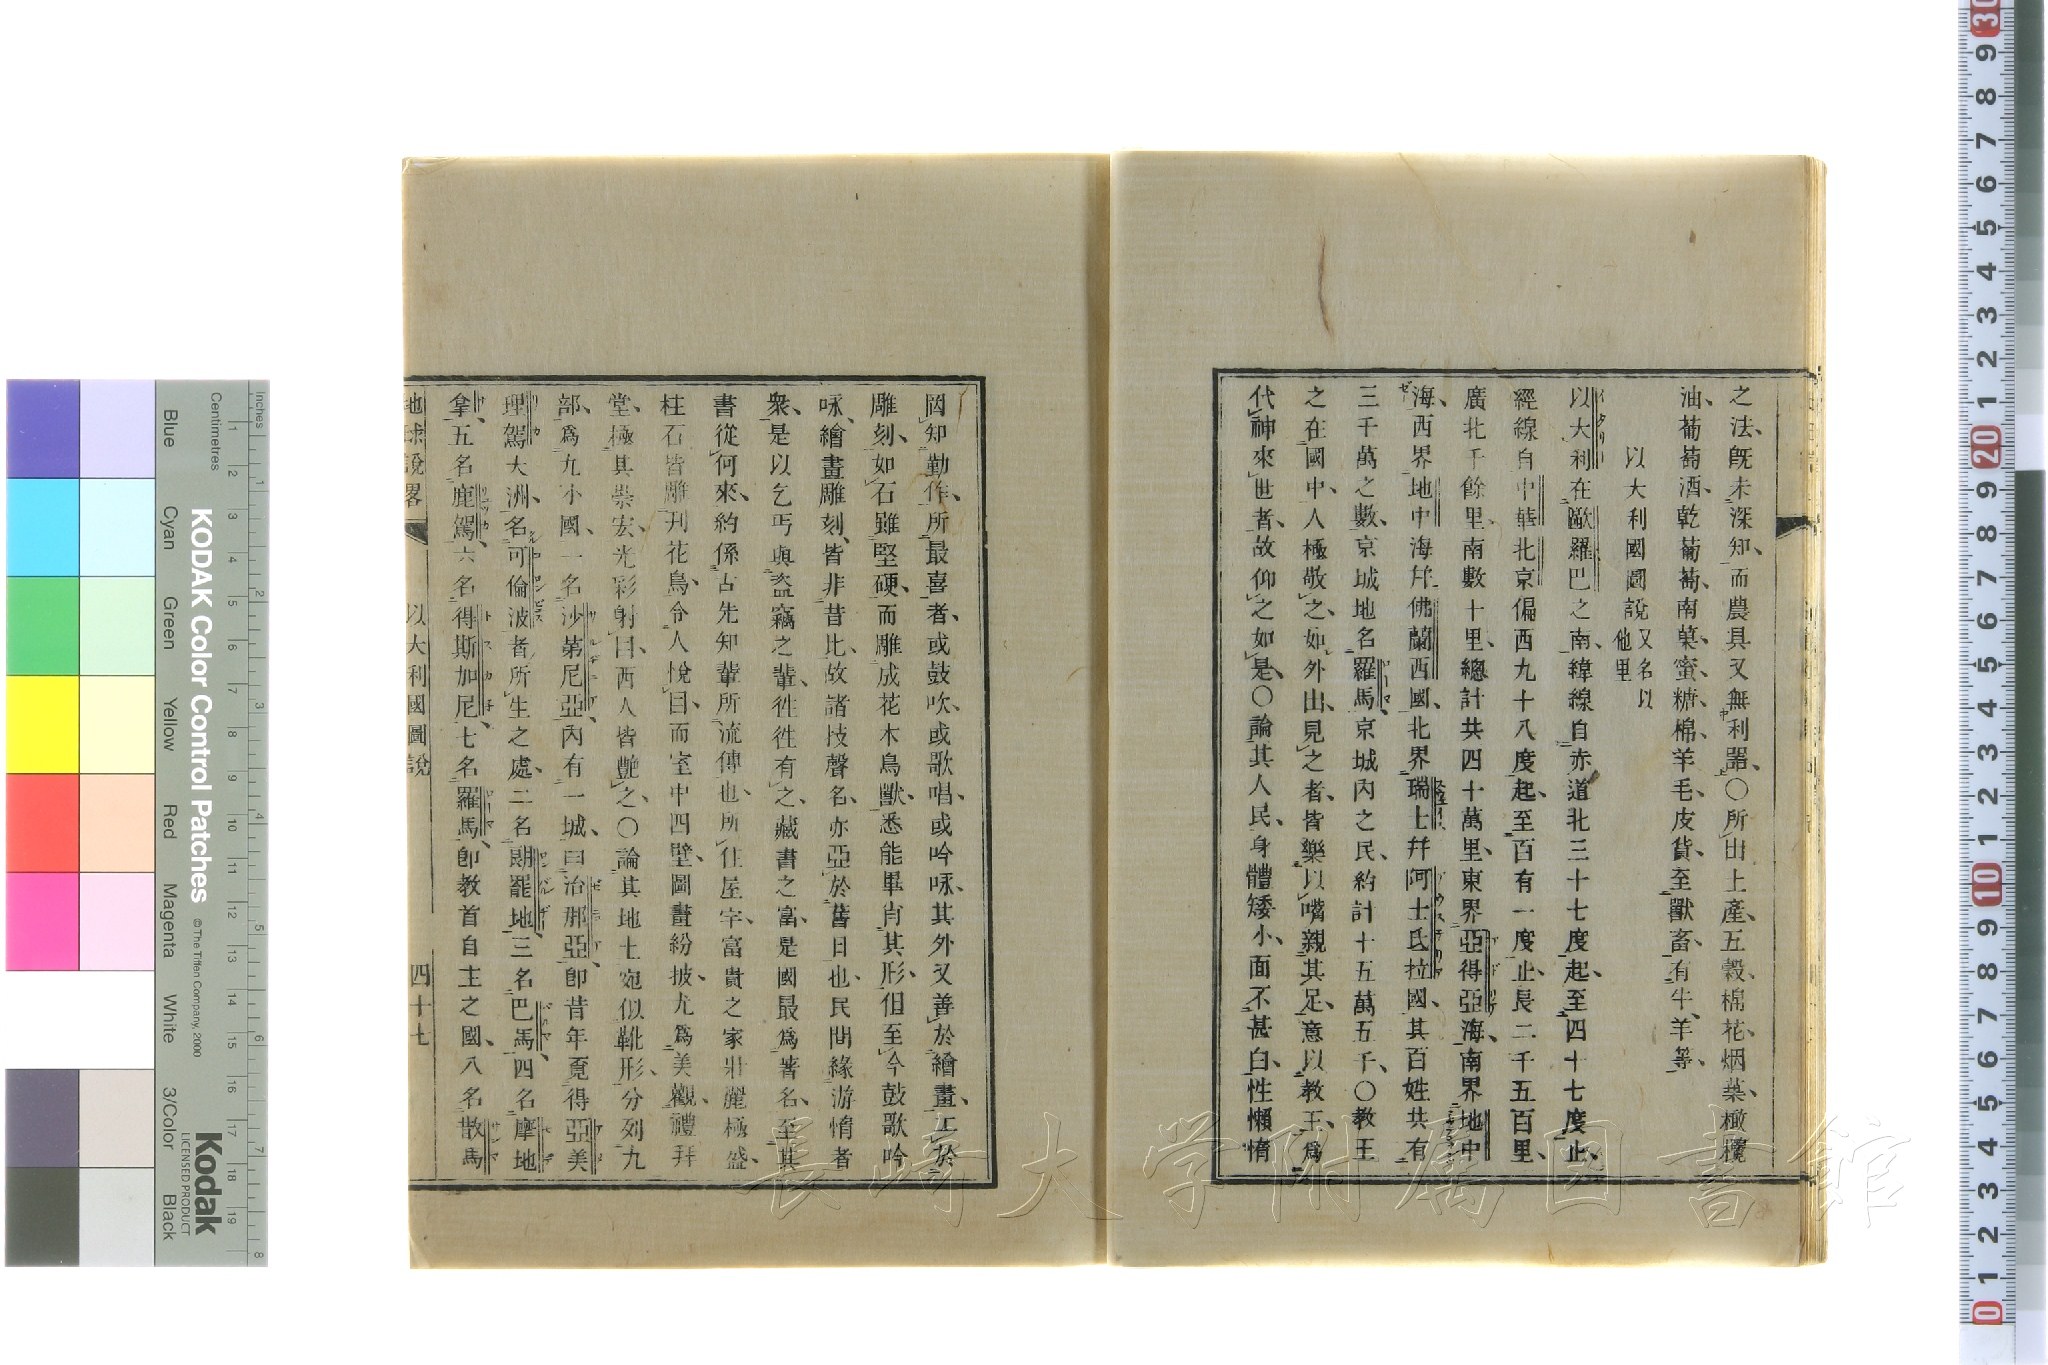 之法、旣未深知、而農具又無利器、○所出土產、五穀、棉花、烟葉、橄欖
油、葡萄酒、乾葡萄、南菓、蜜、糖、棉、羊毛、皮貨、至獸畜、有牛、羊等、
以大利國圖說 又名以他里
以大利在歐羅巴之南、緯線自赤道北三十七度起、至四十七度止、
經線自中華北京偏西九十八度起、至百有一度止、長二千五百里、
廣北千餘里、南數十里、總計共四十萬里、東界亞得亞海、南界地中
海、西界地中海幷佛蘭西國、北界瑞士幷阿士氐拉國、其百姓共有
三千萬之數、京城地名羅馬、京城內之民、約計十五萬五千、○教王
之在國中、人極敬之、如外出、見之者、皆樂以嘴親其足、意以教王、爲
代神來世者、故仰之如是、○論其人民、身體矮小、面不甚白、性懶惰
罔知勤作、所最喜者、或鼓吹、或歌唱、或吟咏、其外又善於繪畫、工於
雕刻、如石雖堅硬、而雕成花木鳥獸、悉能畢肖其形、但至今鼓歌吟
咏、繪畫雕刻、皆非昔比、故諸技聲名、亦亞於舊日也、民間緣游惰者
衆、是以乞丐與盜竊之輩、往往有之、藏書之富、是國最爲著名、至其
書從何來、約係古先知輩所流傳也、所住屋宇、富貴之家壯麗極盛、
柱石皆雕刋花鳥、令人悅目、而室中四壁、圖畫紛披、尤爲美觀、禮拜
堂、極其崇宏、光彩射目、西人皆艷之、○論其地土宛似靴形、分列九
部、爲九小國、一名沙第尼亞、內有一城、曰治那亞、卽昔年覔得亞美
理駕大洲、名可倫波者所生之處、二名朗罷地、三名巴馬、四名摩地
拿、五名鹿駕、六名得斯加尼、七名羅馬、卽教首自主之國、八名散馬
地球說畧 以大利國圖說 四十七
KODAK Color Control Patches
© The Tiffen Company, 2000
Kodak
LICENSED PRODUCT
Inches
Centimetres
Blue
Cyan
Green
Yellow
Red
Magenta
White
3/Color
Black
長崎大学附属図書館